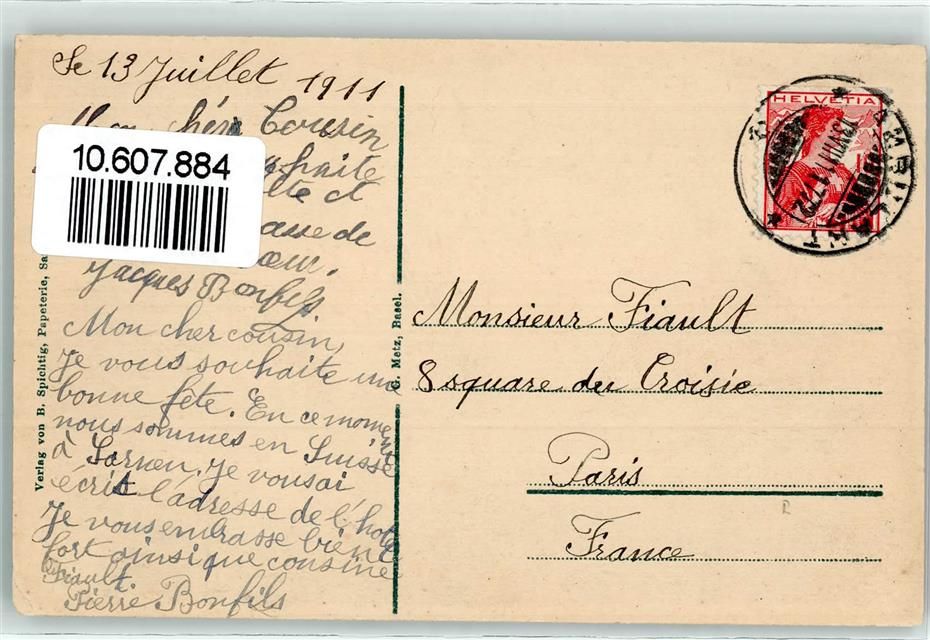 Le 13 Juillet 1911
Mon chéri Cousin
10.607.884
et
de
cœur.
Jacques Bonfils
Mon cher cousin,
Je vous souhaite une
bonne fete. En ce moment
nous sommes en Suisse
à Sarnen. Je vous ai
écrit l'adresse de l'hotel
Je vous embrasse bien
fort ainsi que cousine
Fiault.
Pierre Bonfils
Verlag von B. Spichtig, Papeterie, Sa
G. Metz, Basel.
HELVETIA
AMBULANT
Monsieur Fiault
8 square du Croisic
Paris
France
R